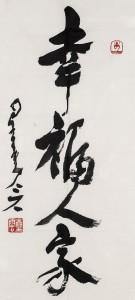 幸福人家